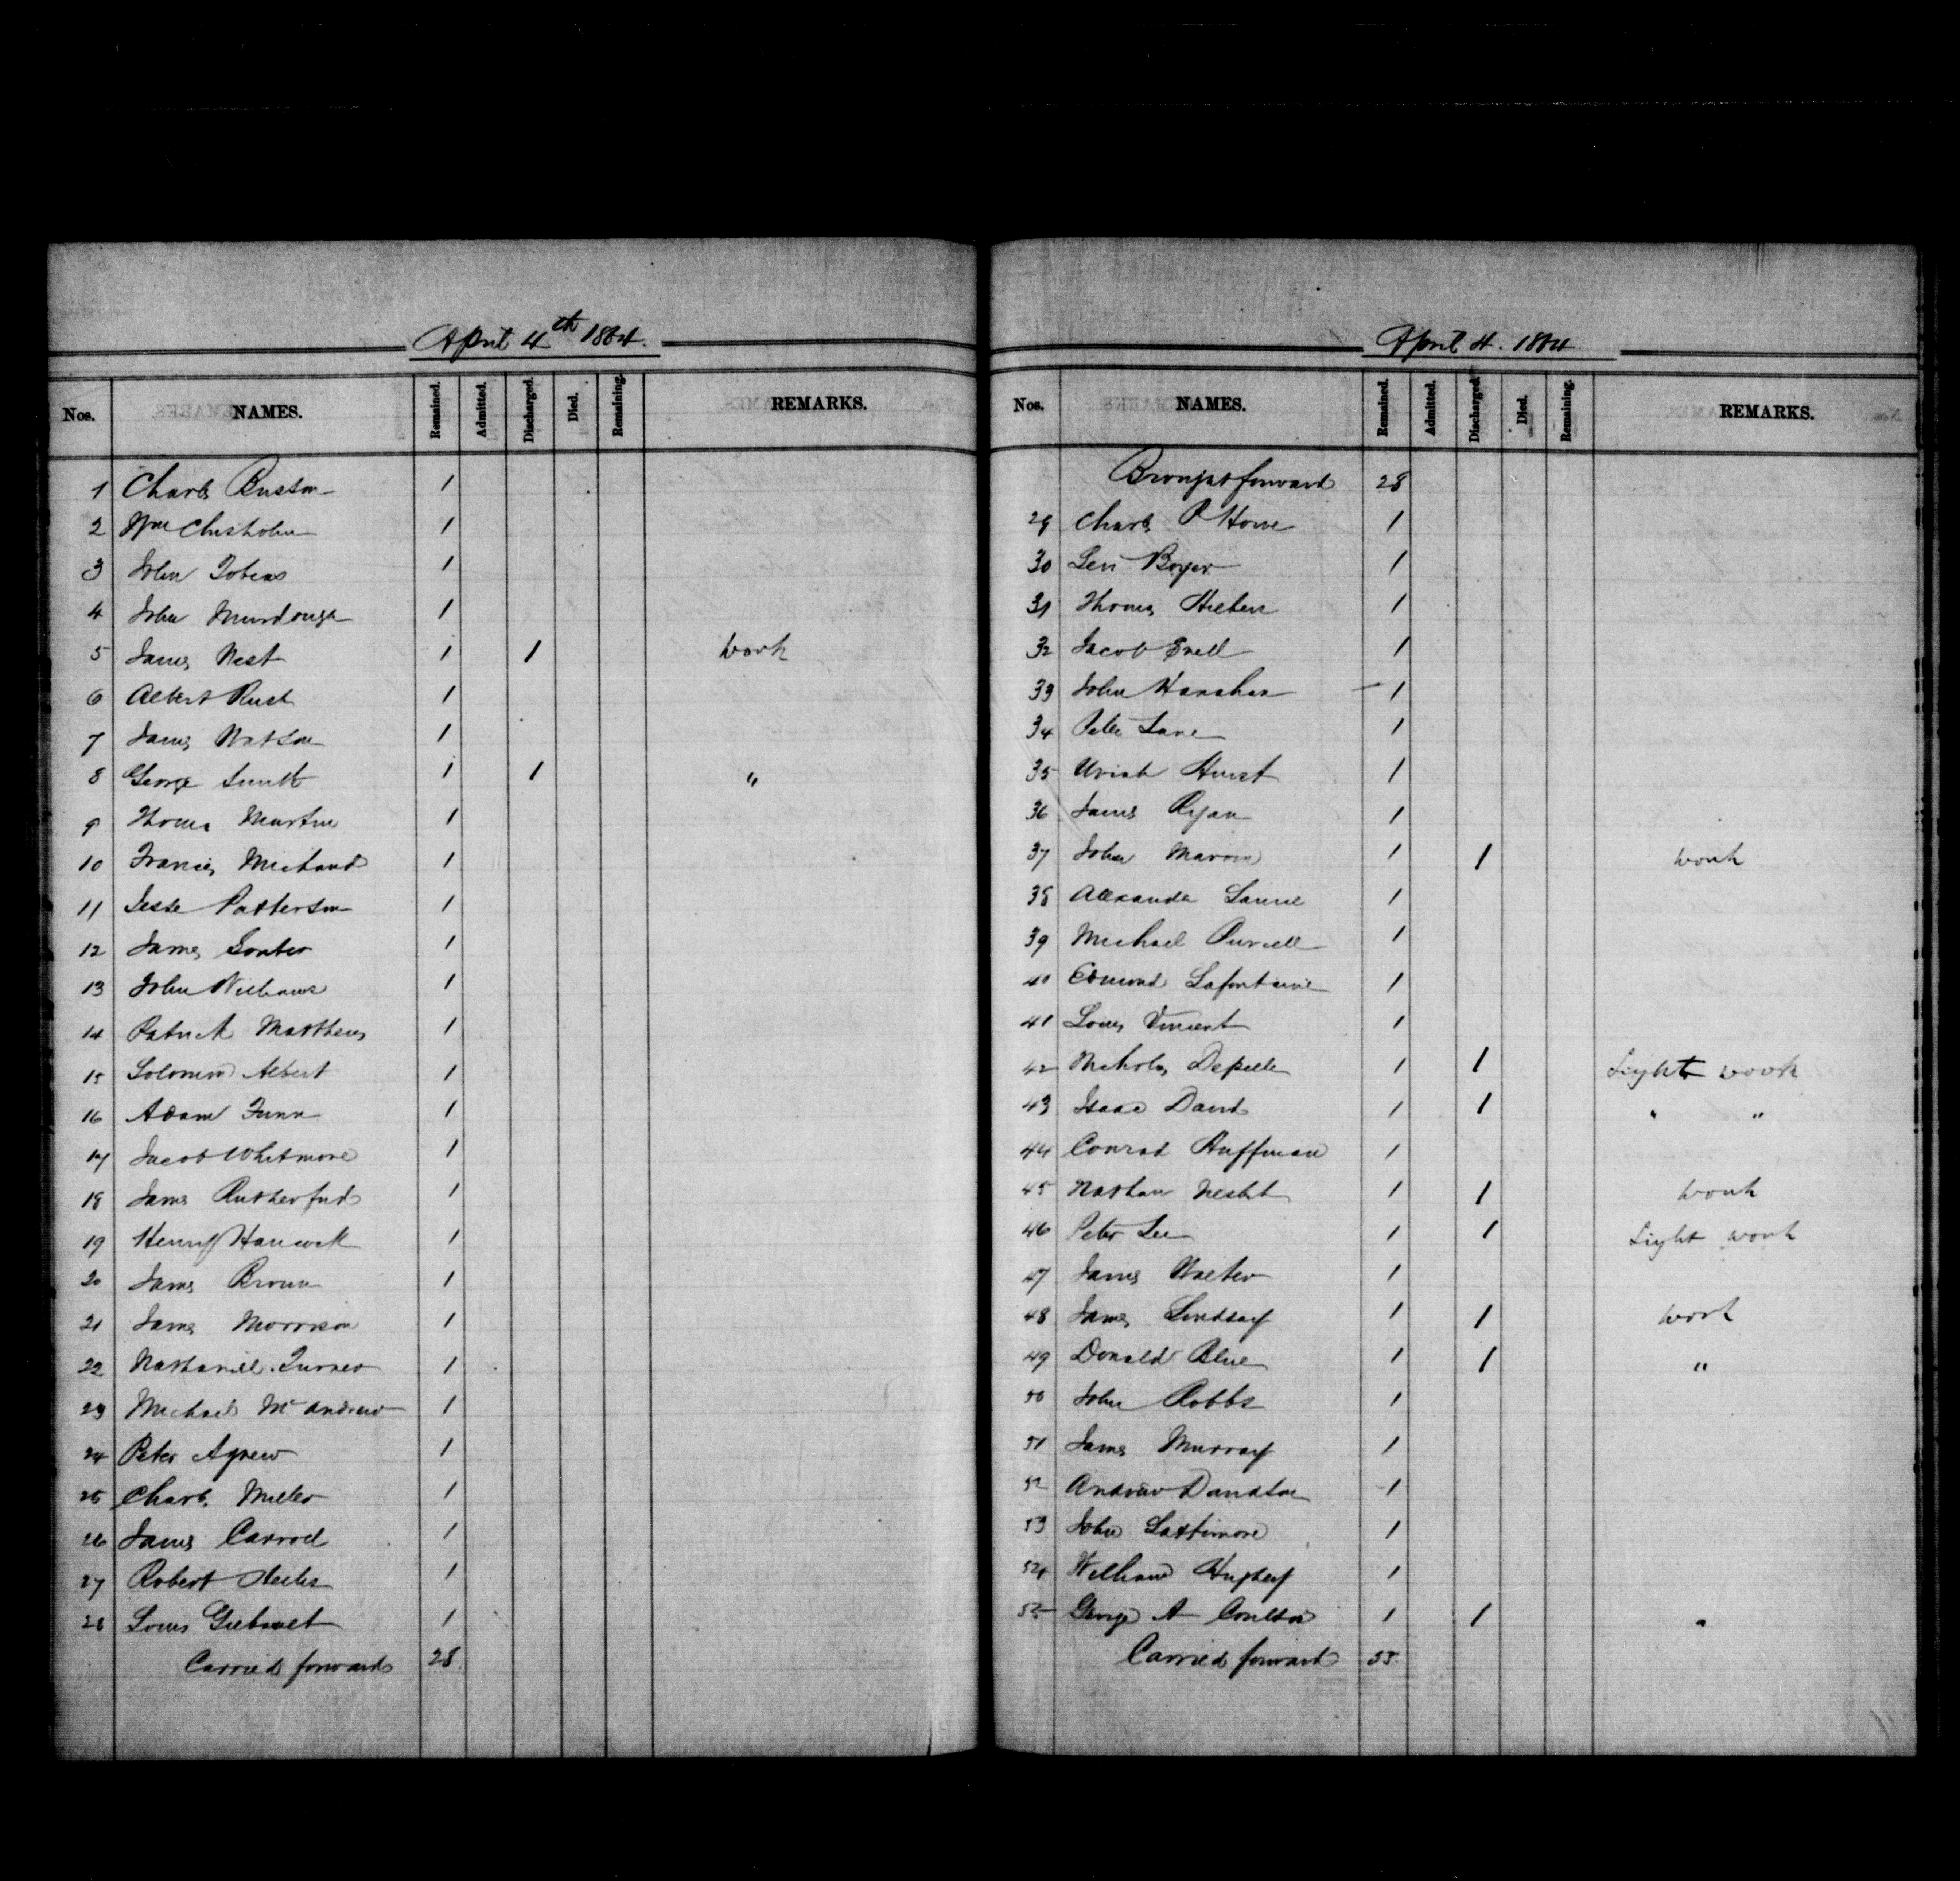 April 4th 1864.
Nos. NAMES. Remained. Admitted. Discharged. Died. Remaining. REMARKS.
1 Charles 1
2 Wm Chisholm 1
3 John Tobias 1
4 John Murdough 1
5 James West 1 1 work
6 Albert Rush 1
7 James Watson 1
8 George Smith 1 1 "
9 Thomas Martin 1
10 Francis Michaud 1
11 Jesse Patterson 1
12 James 1
13 John Williams 1
14 Patrick Matthews 1
15 Solomon Albert 1
16 Adam 1
17 Jacob Whitmore 1
18 James Rutherford 1
19 Henry Hancock 1
20 James Brown 1
21 James Morrison 1
22 Nathaniel Turner 1
23 Michael McAndrew 1
24 Peter Agnew 1
25 Charles Miller 1
26 James Carroll 1
27 Robert 1
28 Louis 1
Carried forward 28.
April 4. 1864
Nos. NAMES. Remained. Admitted. Discharged. Died. Remaining. REMARKS.
Brought forward 28
29 Charles P Howe 1
30 Levi Boyer 1
31 Thomas 1
32 Jacob Snell 1
33 John Hanahan 1
34 Peter Lane 1
35 Uriah Hurst 1
36 James Ryan 1
37 John 1 1 work
38 Alexander Laurie 1
39 Michael Purcell 1
40 Edmond Lafontaine 1
41 Louis Vincent 1
42 Nicholas 1 1 Light work
43 Isaac David 1 1 " "
44 Conrad Huffman 1
45 Nathan Nesbit 1 1 work
46 Peter Lee 1 1 Light work
47 James Walter 1
48 James Lindsay 1 1 work
49 Donald Blue 1 1 "
50 John Robbs 1
51 James Murray 1
52 Andrew Davidson 1
53 John Lattimore 1
54 William 1
55 George A Coulson 1 1 "
Carried forward 55.